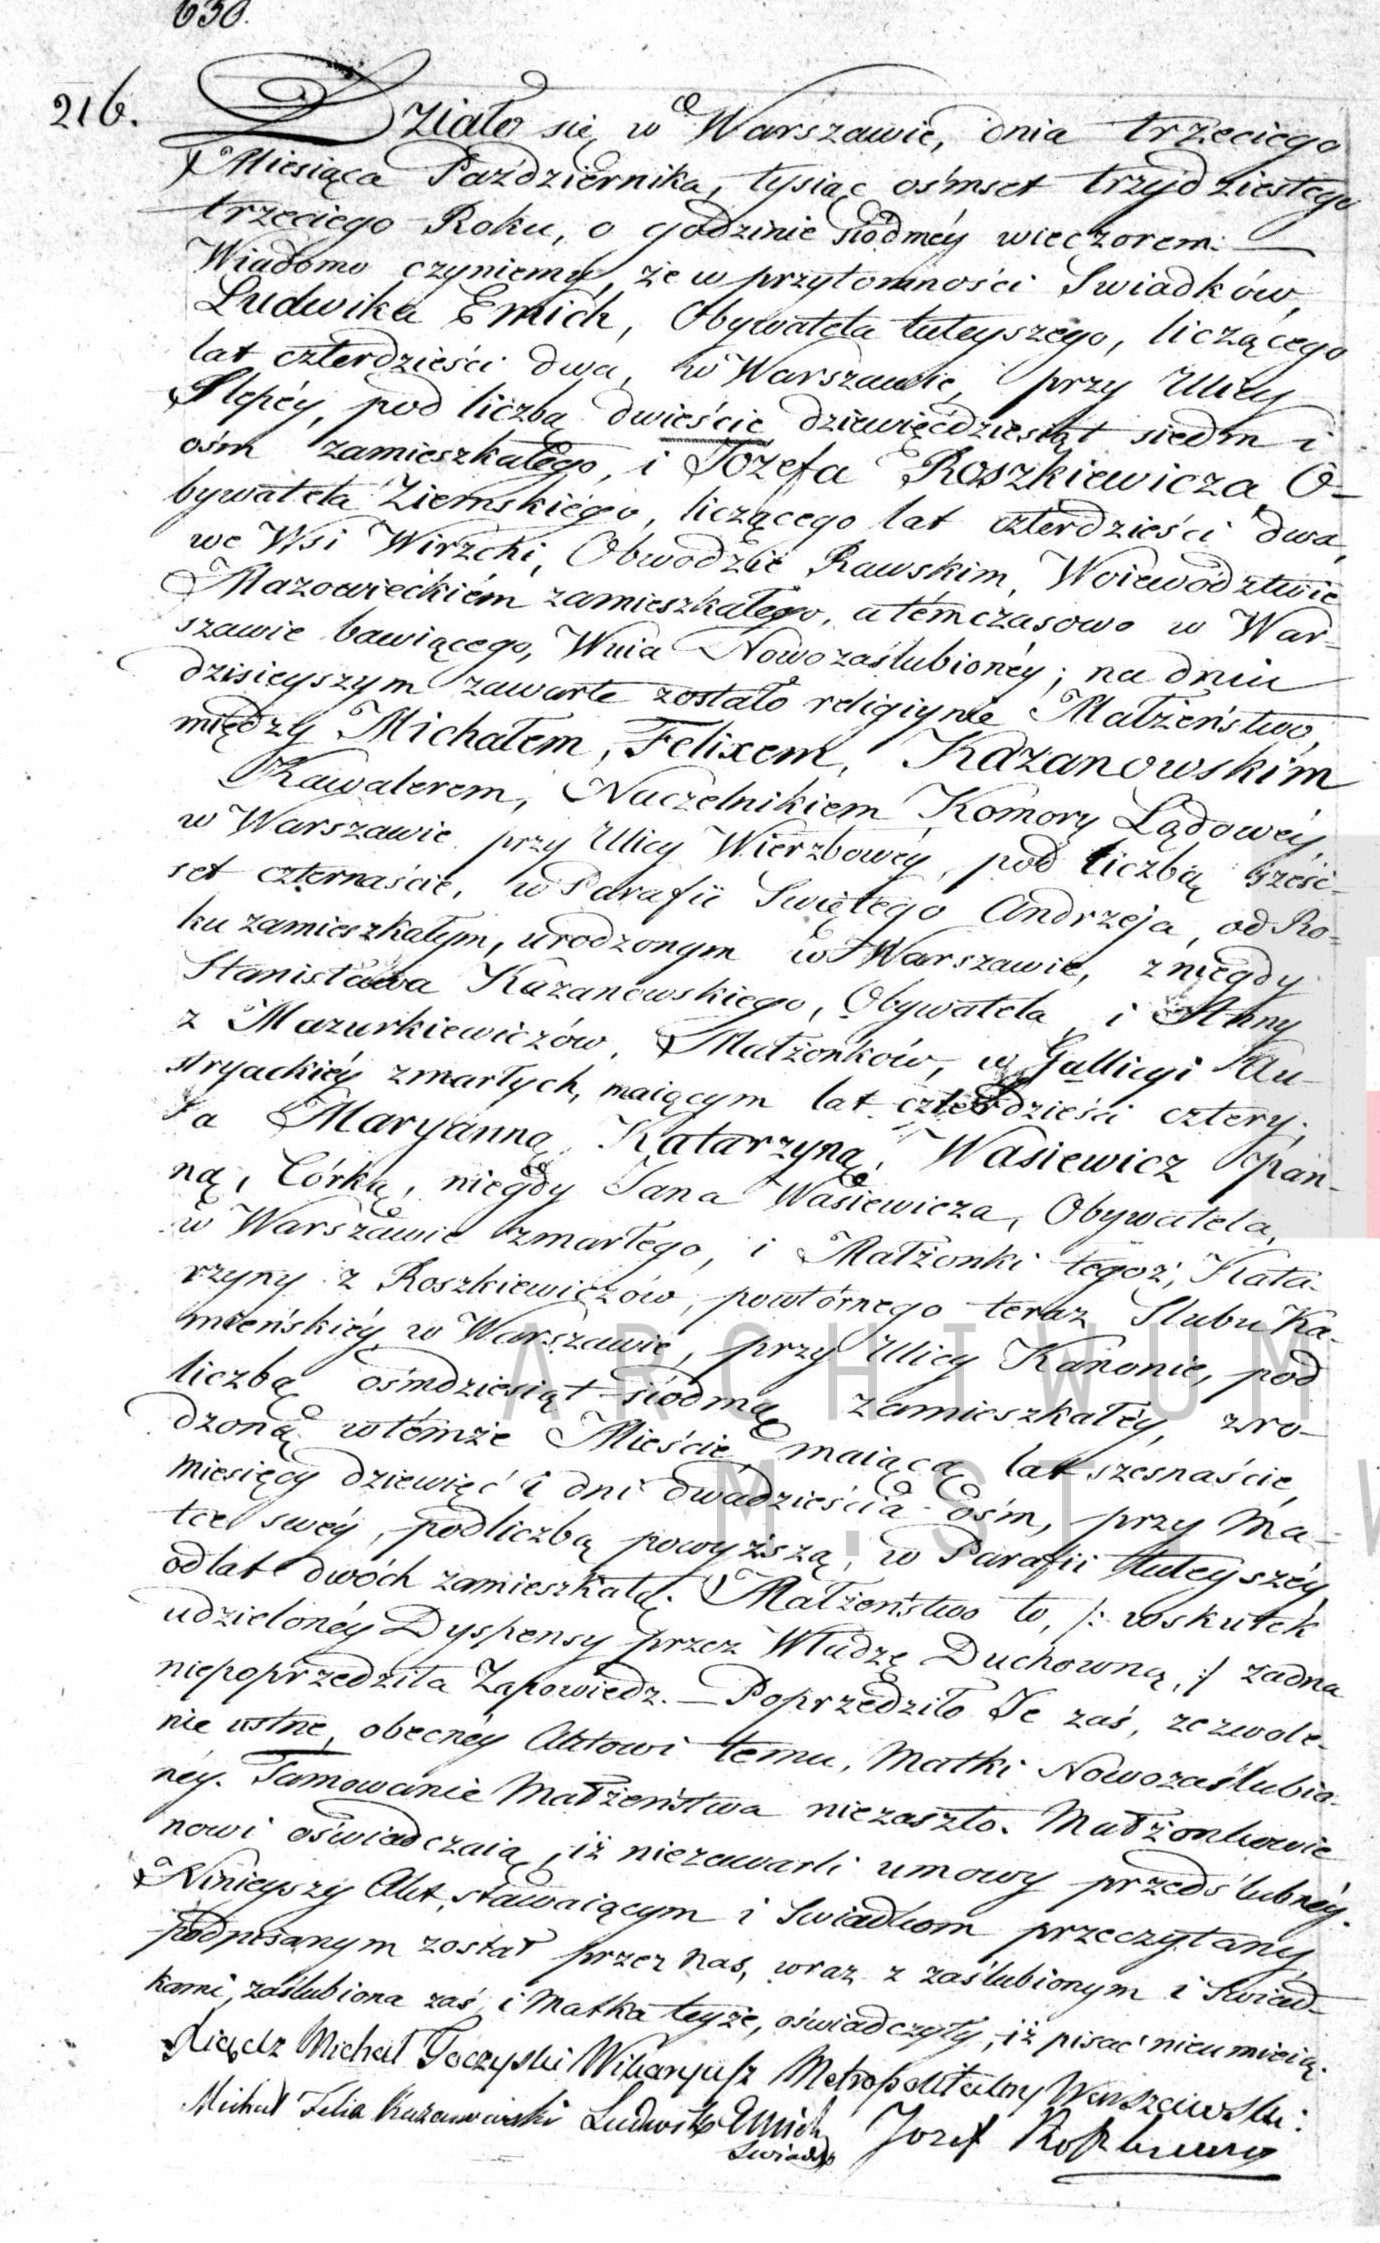 630.
216.
Działo się w Warszawie, dnia trzeciego
Miesiąca Października, tysiąc ośmset trzydziestego
trzeciego Roku, o godzinie siódméy wieczorem.
Wiadomo czyniemy, że w przytomności Swiadków,
Ludwika Emich, Obywatela tuteyszego, liczącego
lat czterdzieści dwa, w Warszawie, przy Ulicy
Slepéy, pod liczbą dwieście dziewięćdziesiąt siedm i
ośm zamieszkałego, i Józefa Roszkiewicza, O-
bywatela Ziemskiego, liczącego lat czterdzieści dwa,
we Wsi Wirzchi, Obwodzie Rawskim, Woiewództwie
Mazowieckiém zamieszkałego, a témczasowo w War-
szawie bawiącego, Wuia Nowozaślubionéy; na dniu
dzisieyszym zawarte zostało religiyne Małżeństwo,
między Michałem, Felixem, Kazanowskim
Kawalerem, Naczelnikiem Komory Lądowéy
w Warszawie przy Ulicy Wierzbowéy, pod liczbą sześć-
set czternaście, w Parafii Swiętego Andrzeja, od Ro-
ku zamieszkałym, urodzonym w Warszawie, z niegdy
Stanisława Kazanowskiego, Obywatela, i Anny
z Mazurkiewiczów, Małżonków, w Gallicyi Au-
stryackiéy zmarłych, maiącym lat czterdzieści cztery;
a Maryanną, Katarzyną, Wasiewicz Pan-
ną, Córką, niegdy Jana Wasiewicza, Obywatela,
w Warszawie zmarłego, i Małżonki tegoż, Kata-
rzyny z Roszkiewiczów, powtórnego teraz Slubu Ka-
mieńskiéy w Warszawie, przy Ulicy Kanonie, pod
liczbą ośmdziesiąt siódmą zamieszkałéy, zro-
dzoną w témże Mieście, maiącą lat szesnaście,
miesięcy dziewięć i dni dwadzieścia ośm, przy Ma-
tce swéy, pod liczbą powyższą, w Parafii tuteyszéy
od lat dwóch zamieszkałą. Małżeństwo to, /: wskutek
udzielonéy Dyspensy przez Władzę Duchowną, :/ żadna
niepoprzedziła Zapowiedz. — Poprzedziło Je zaś, zezwole-
nie ustne, obecnéy Aktowi temu, Matki Nowozaślubio-
néy. Tamowanie Małżeństwa niezaszło. Małżonkowie
nowi oświadczaią, iż niezawarli umowy przedślubnéy.
Ninieyszy Akt, stawaiącym i Swiadkom przeczytany,
podpisanym został przez nas, wraz z zaślubionym i Swiad-
kami, zaślubiona zaś i Matka teyże, oświadczyły, iż pisać nieumieią.
Xiądz Michał Goczyski Wikaryusz Metropolitalny Warszawski.
Michał Felix Kazanowski Ludwik Emich Józef Roszkiewicz
Swiadek
ARCHIWUM
M.ST. W